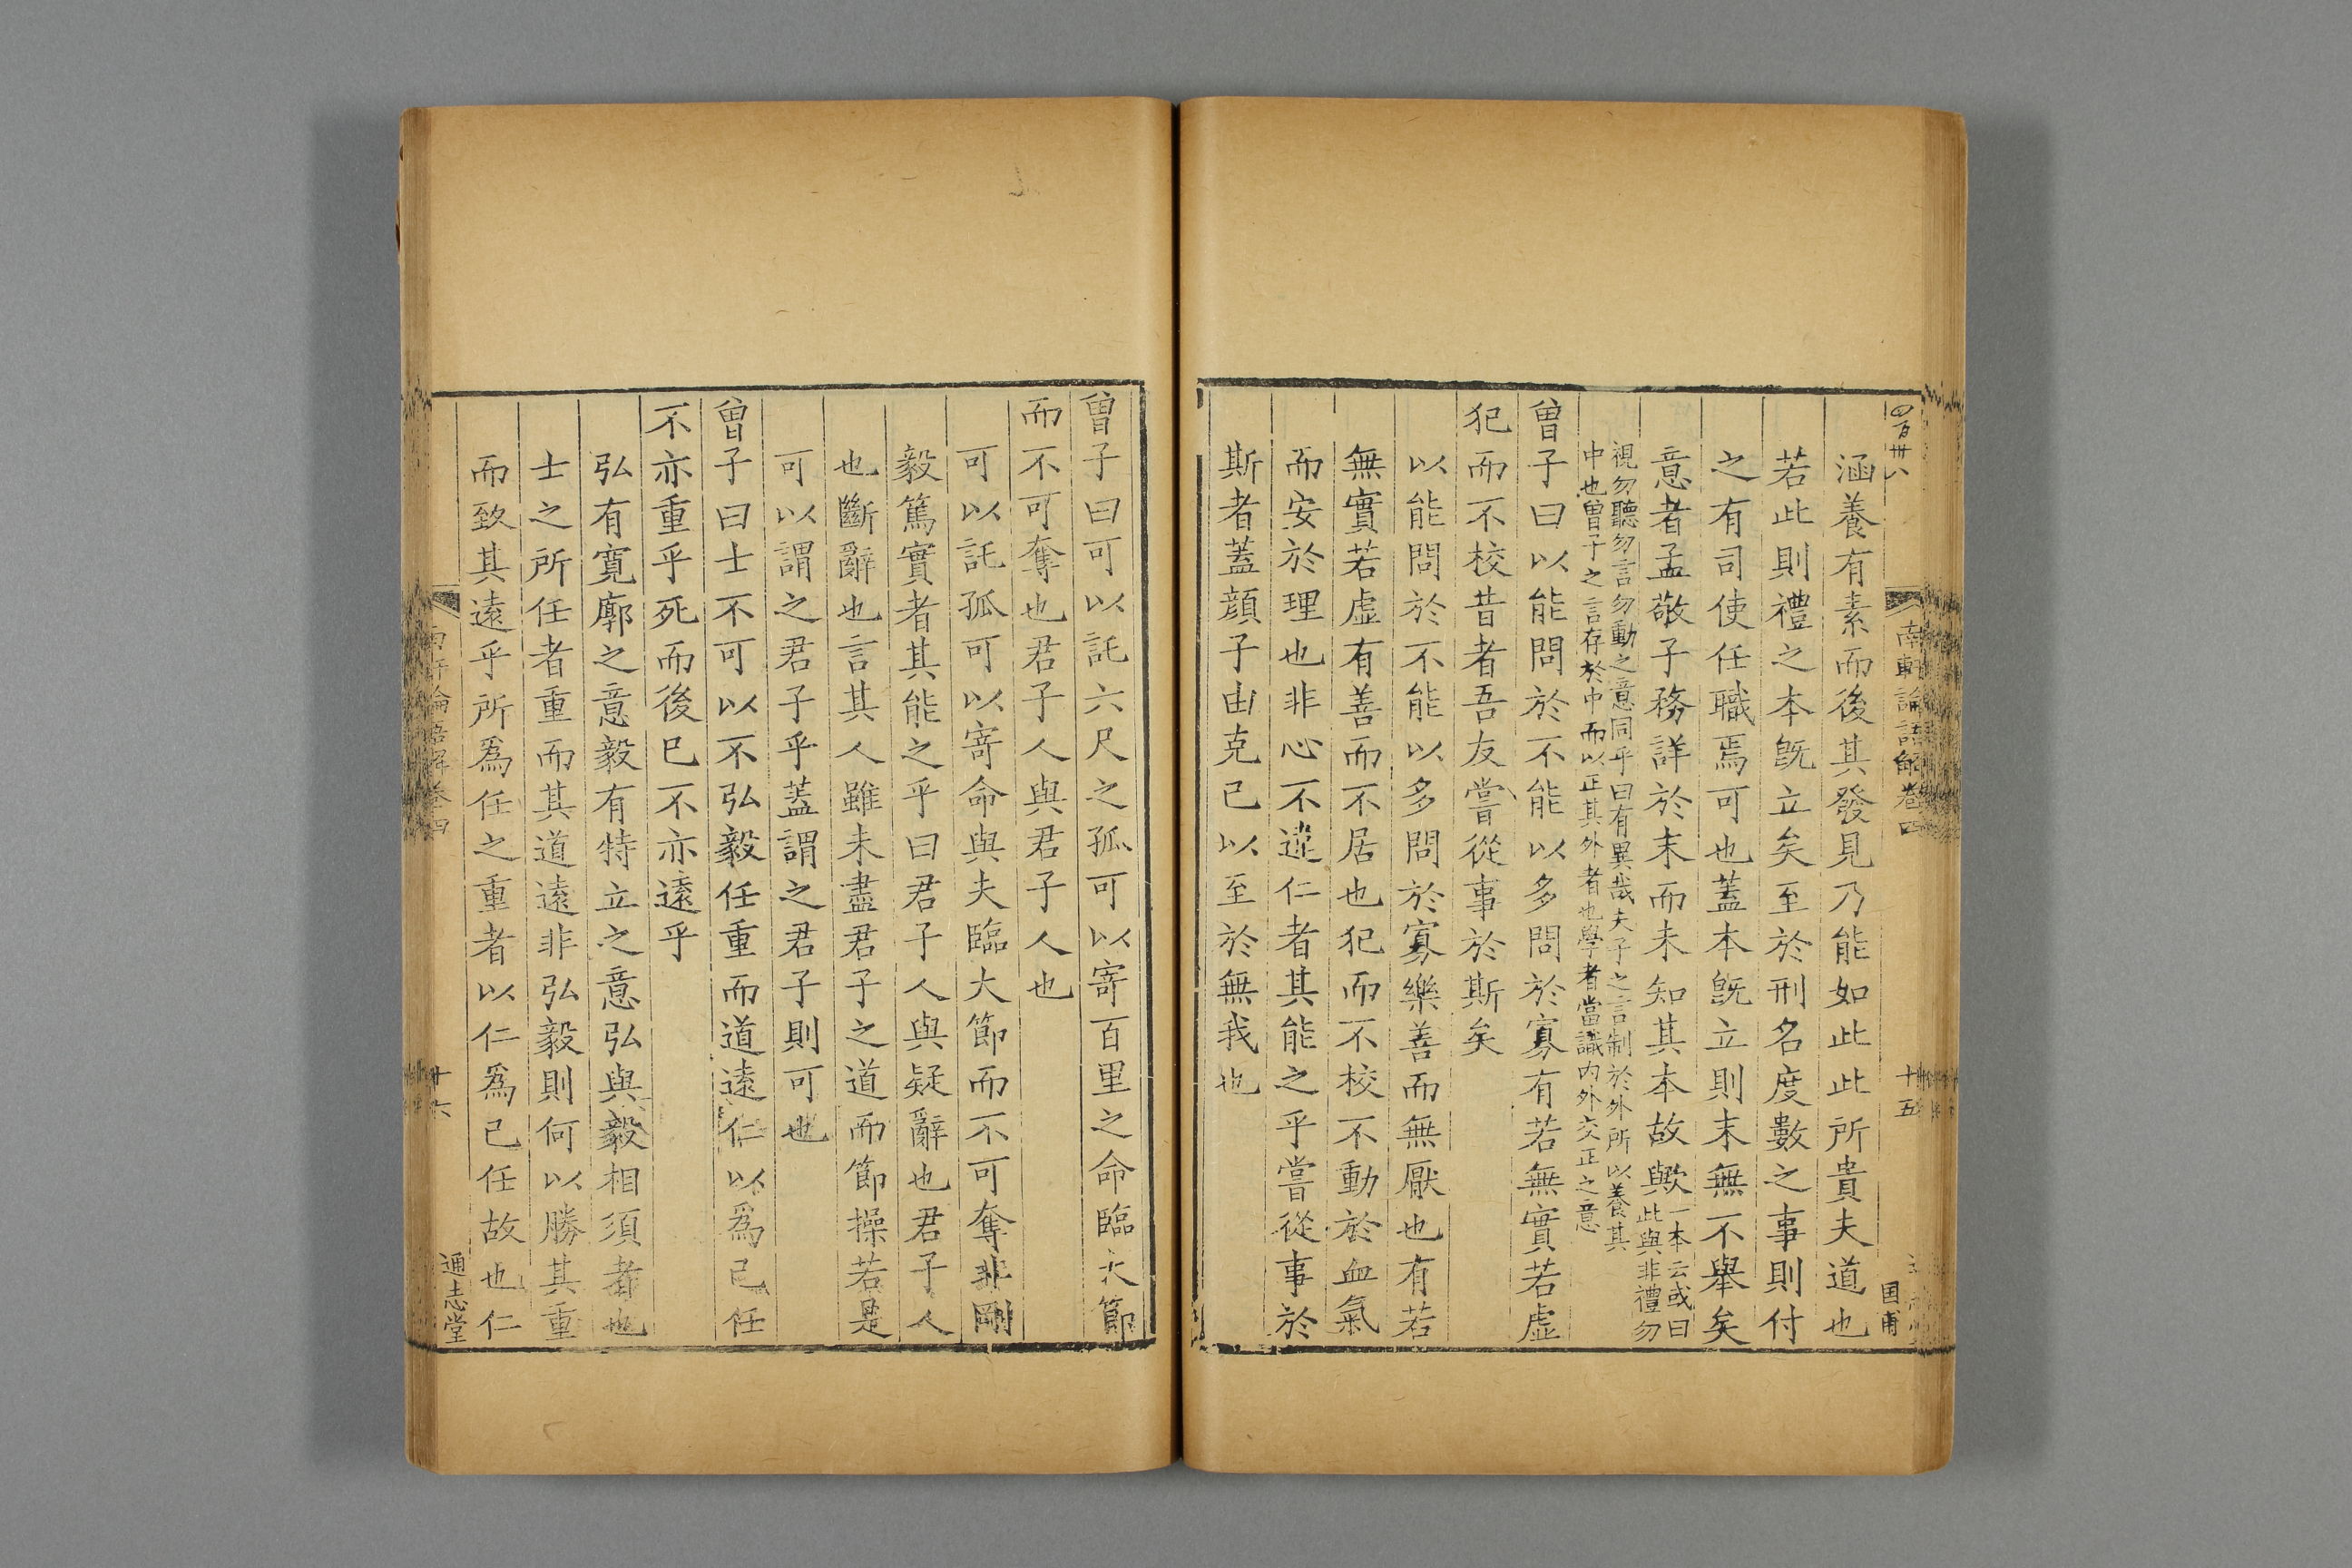 四百卅八
南軒論語解卷四
十五
国甫
涵養有素而後其發見乃能如此此所貴夫道也
若此則禮之本旣立矣至於刑名度數之事則付
之有司使任職焉可也蓋本旣立則末無不舉矣
意者孟敬子務詳於末而未知其本故歟一本云或曰此與非禮勿
視勿聽勿言勿動之意同乎曰有異哉夫子之言制於外所以養其
中也曾子之言存於中而以正其外者也學者當識内外交正之意
曾子曰以能問於不能以多問於寡有若無實若虛
犯而不校昔者吾友嘗從事於斯矣
以能問於不能以多問於寡樂善而無厭也有若
無實若虛有善而不居也犯而不校不動於血氣
而安於理也非心不違仁者其能之乎嘗從事於
斯者蓋顔子由克己以至於無我也
曾子曰可以託六尺之孤可以寄百里之命臨大節
而不可奪也君子人與君子人也
可以託孤可以寄命與夫臨大節而不可奪非剛
毅篤實者其能之乎曰君子人與疑辭也君子人
也斷辭也言其人雖未盡君子之道而節操若是
可以謂之君子乎蓋謂之君子則可也
曾子曰士不可以不弘毅任重而道遠仁以爲己任
不亦重乎死而後已不亦遠乎
弘有寬廓之意毅有特立之意弘與毅相須者也
士之所任者重而其道遠非弘毅則何以勝其重
而致其遠乎所爲任之重者以仁爲己任故也仁
論語解卷四
十六
通志堂